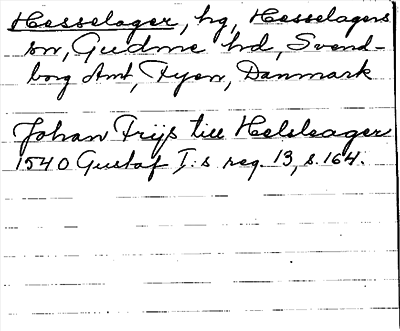 Hesselager, hg, Hesselagers
sn, Gudme hd, Svend-
borg Amt, Fyen, Danmark
Johan Frijs till Helsleager
1540 Gustaf I:s reg. 13, s. 164.